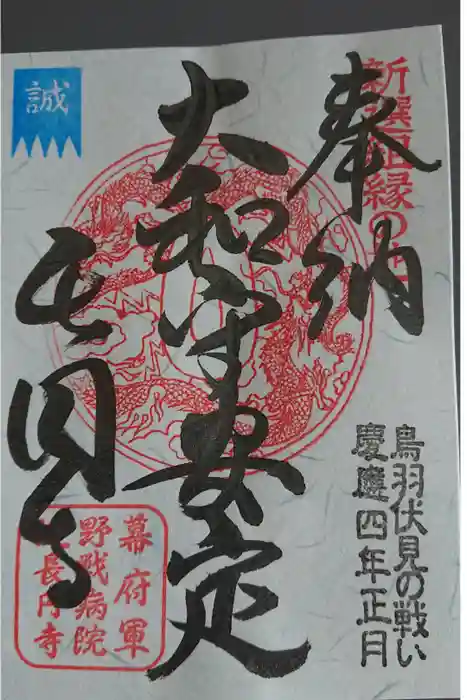 奉納
新選組縁の寺
大和守安定
長円寺
誠
鳥羽伏見の戦い
慶應四年正月
幕府軍
野戦病院
長円寺